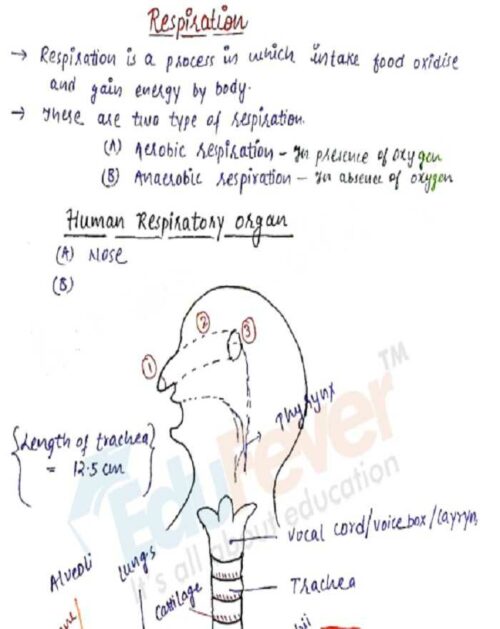 Respiration
→ Respiration is a process in which intake food oxidise
and gain energy by body.
→ There are two type of respiration.
(A) Aerobic respiration - In presence of oxygen
(B) Anaerobic respiration - In absence of oxygen
Human Respiratory organ
(A) Nose
(B)
1
2
3
Phyrynx
{Length of trachea}
= 12.5 cm
Vocal cord/voice box/Layryn
Alveoli
Lungs
Cartilage
Trachea
EduRever™
It's all about education